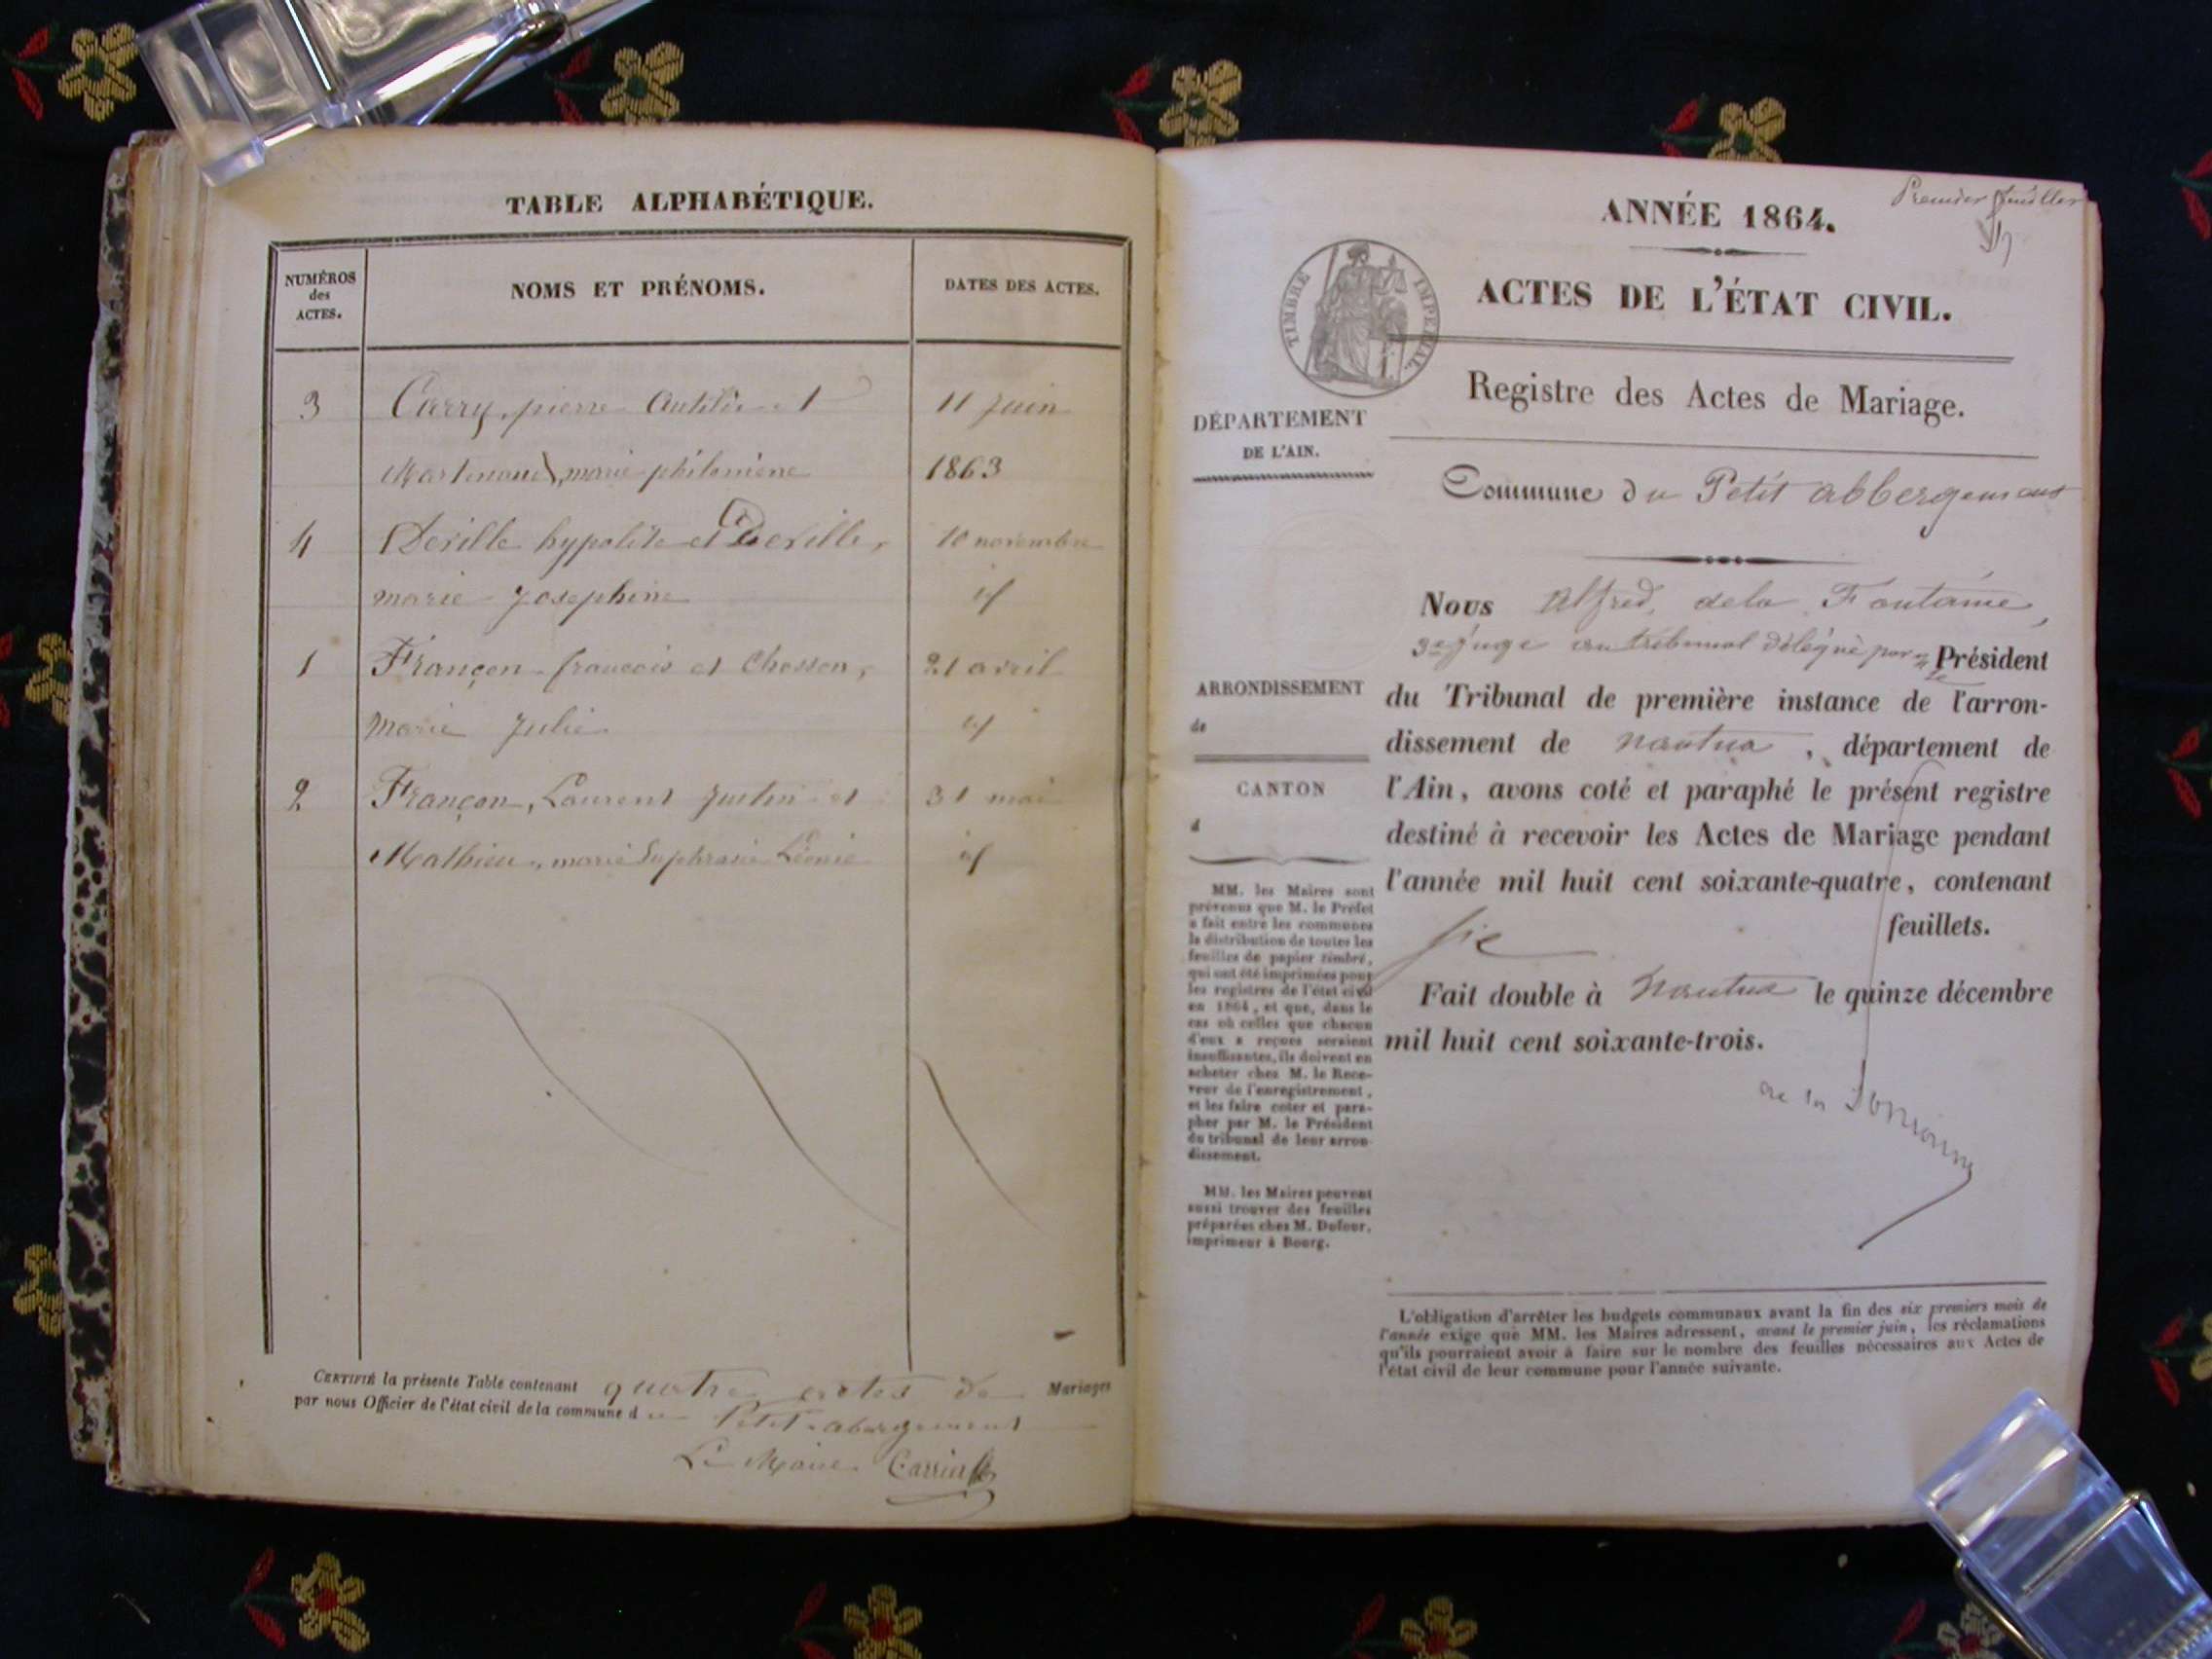 TABLE ALPHABÉTIQUE.
NUMÉROS
des
ACTES.
NOMS ET PRÉNOMS.
DATES DES ACTES.
3 Carry, pierre et 11 juin
marie philomène 1863
4 Deville hypolite et Deville, 10 novembre
marie Josephine id
1 Françon françois et Chosson, 21 avril
marie Julie id
2 Françon, Laurent Justin et 31 mai
Mathieu, marie Euphrasie Léonie id
CERTIFIÉ la présente Table contenant quatre actes de Mariages
par nous Officier de l'état civil de la commune du Petit abergement
Le Maire Carrier
Premier feuillet
ANNÉE 1864.
ACTES DE L'ÉTAT CIVIL.
TIMBRE IMPÉRIAL
Registre des Actes de Mariage.
DÉPARTEMENT
DE L'AIN.
Commune du Petit abbergement
Nous Alfred, dela Fontaine,
juge au tribunal délégué par Président
le
ARRONDISSEMENT
de
CANTON
d
du Tribunal de première instance de l'arron-
dissement de nantua, département de
l'Ain, avons coté et paraphé le présent registre
destiné à recevoir les Actes de Mariage pendant
l'année mil huit cent soixante-quatre, contenant
feuillets.
Fait double à Nantua le quinze décembre
mil huit cent soixante-trois.
MM. les Maires sont
prévenus que M. le Préfet
a fait entre les communes
la distribution de toutes les
feuilles de papier timbré,
qui ont été imprimées pour
les registres de l'état civil
en 1864, et que, dans le
cas où celles que chacun
d'eux a reçues seraient
insuffisantes, ils doivent en
acheter chez M. le Rece-
veur de l'enregistrement,
et les faire coter et para-
pher par M. le Président
du tribunal de leur arron-
dissement.
MM. les Maires peuvent
aussi trouver des feuilles
préparées chez M. Dufour,
imprimeur à Bourg.
L'obligation d'arrêter les budgets communaux avant la fin des six premiers mois de
l'année exige que MM. les Maires adressent, avant le premier juin, les réclamations
qu'ils pourraient avoir à faire sur le nombre des feuilles nécessaires aux Actes de
l'état civil de leur commune pour l'année suivante.